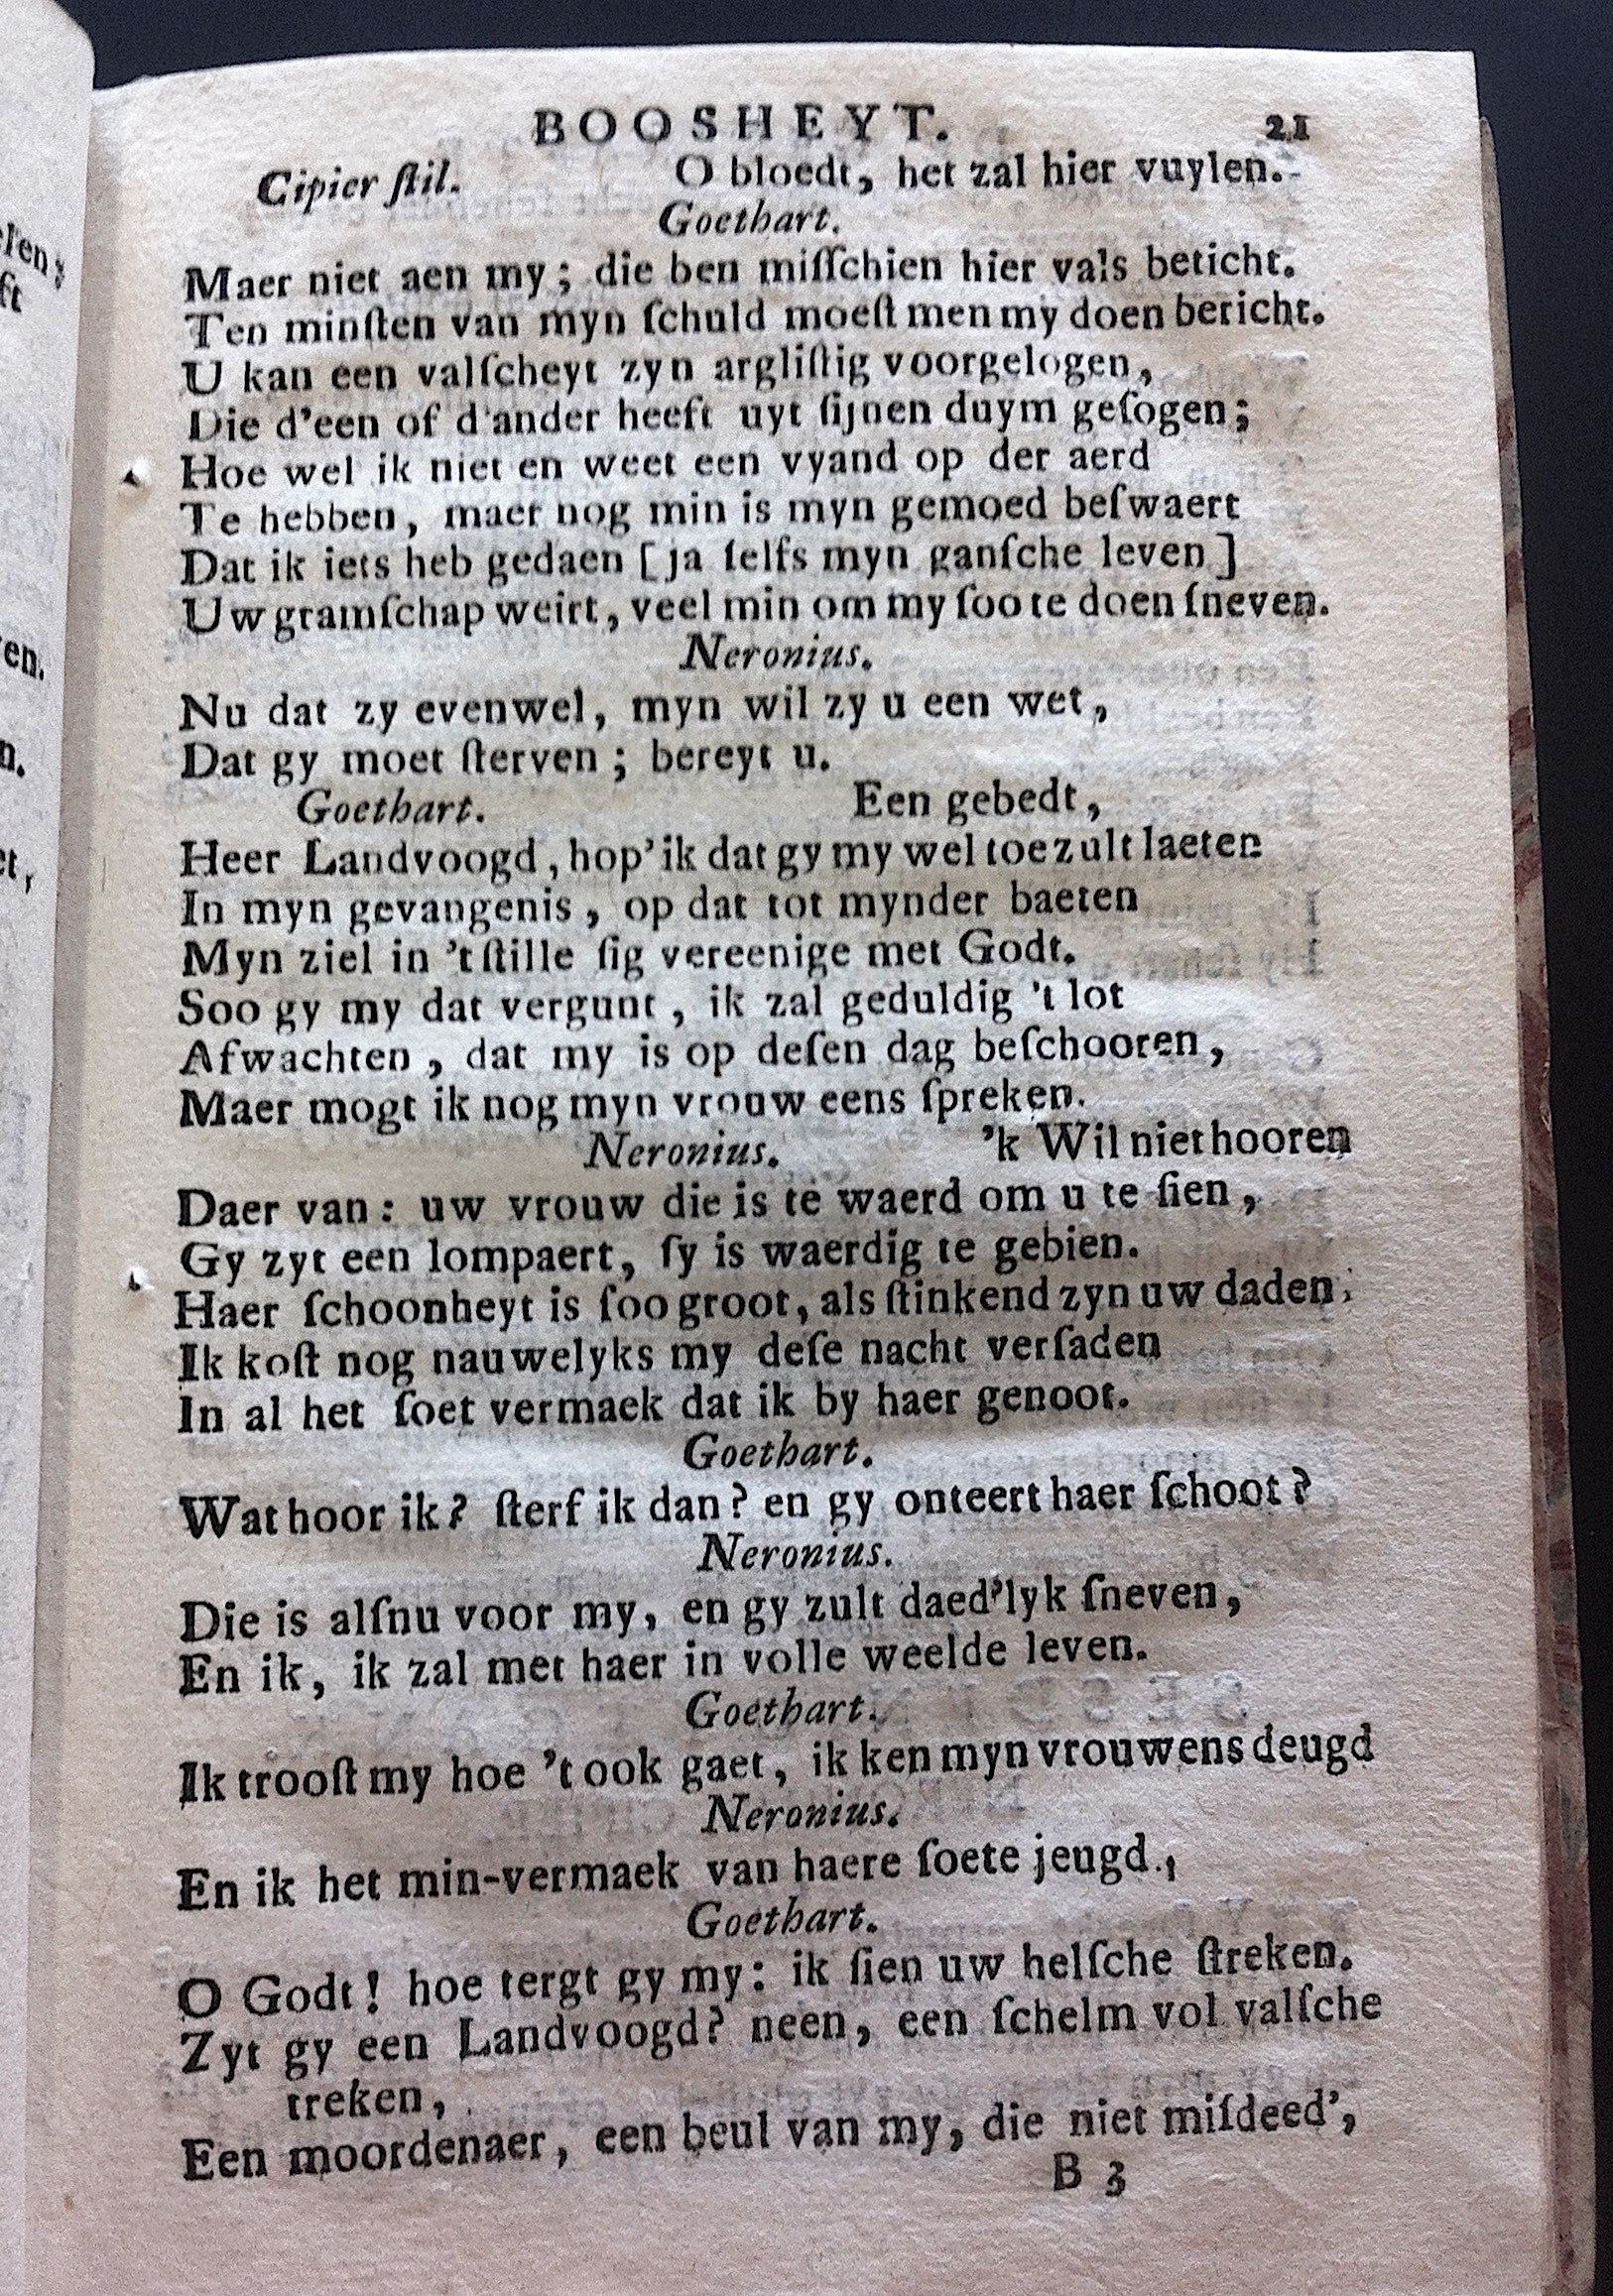 BOOSHEYT. 21
Cipier ſtil. O bloedt, het zal hier vuylen.
Goethart.
Maer niet aen my; die ben miſſchien hier vals beticht.
Ten minſten van myn ſchuld moeſt men my doen bericht.
U kan een valſcheyt zyn argliſtig voorgelogen,
Die d'een of d'ander heeft uyt ſijnen duym geſogen;
Hoe wel ik niet en weet een vyand op der aerd
Te hebben, maer nog min is myn gemoed beſwaert
Dat ik iets heb gedaen [ja ſelfs myn ganſche leven]
Uw gramſchap weirt, veel min om my ſoo te doen ſneven.
Neronius.
Nu dat zy evenwel, myn wil zy u een wet,
Dat gy moet ſterven; bereyt u.
Goethart. Een gebedt,
Heer Landvoogd, hop' ik dat gy my wel toe zult laeten
In myn gevangenis, op dat tot mynder baeten
Myn ziel in 't ſtille ſig vereenige met Godt.
Soo gy my dat vergunt, ik zal geduldig 't lot
Afwachten, dat my is op deſen dag beſchooren,
Maer mogt ik nog myn vrouw eens ſpreken.
Neronius. 'k Wil niet hooren
Daer van: uw vrouw die is te waerd om u te ſien,
Gy zyt een lompaert, ſy is waerdig te gebien.
Haer ſchoonheyt is ſoo groot, als ſtinkend zyn uw daden,
Ik koſt nog nauwelyks my deſe nacht verſaden
In al het ſoet vermaek dat ik by haer genoot.
Goethart.
Wat hoor ik? ſterf ik dan? en gy onteert haer ſchoot?
Neronius.
Die is alſnu voor my, en gy zult daed'lyk ſneven,
En ik, ik zal met haer in volle weelde leven.
Goethart.
Ik trooſt my hoe 't ook gaet, ik ken myn vrouwens deugd
Neronius.
En ik het min-vermaek van haere ſoete jeugd.,
Goethart.
O Godt! hoe tergt gy my: ik ſien uw helſche ſtreken.
Zyt gy een Landvoogd? neen, een ſchelm vol valſche
treken,
Een moordenaer, een beul van my, die niet miſdeed',
B 3